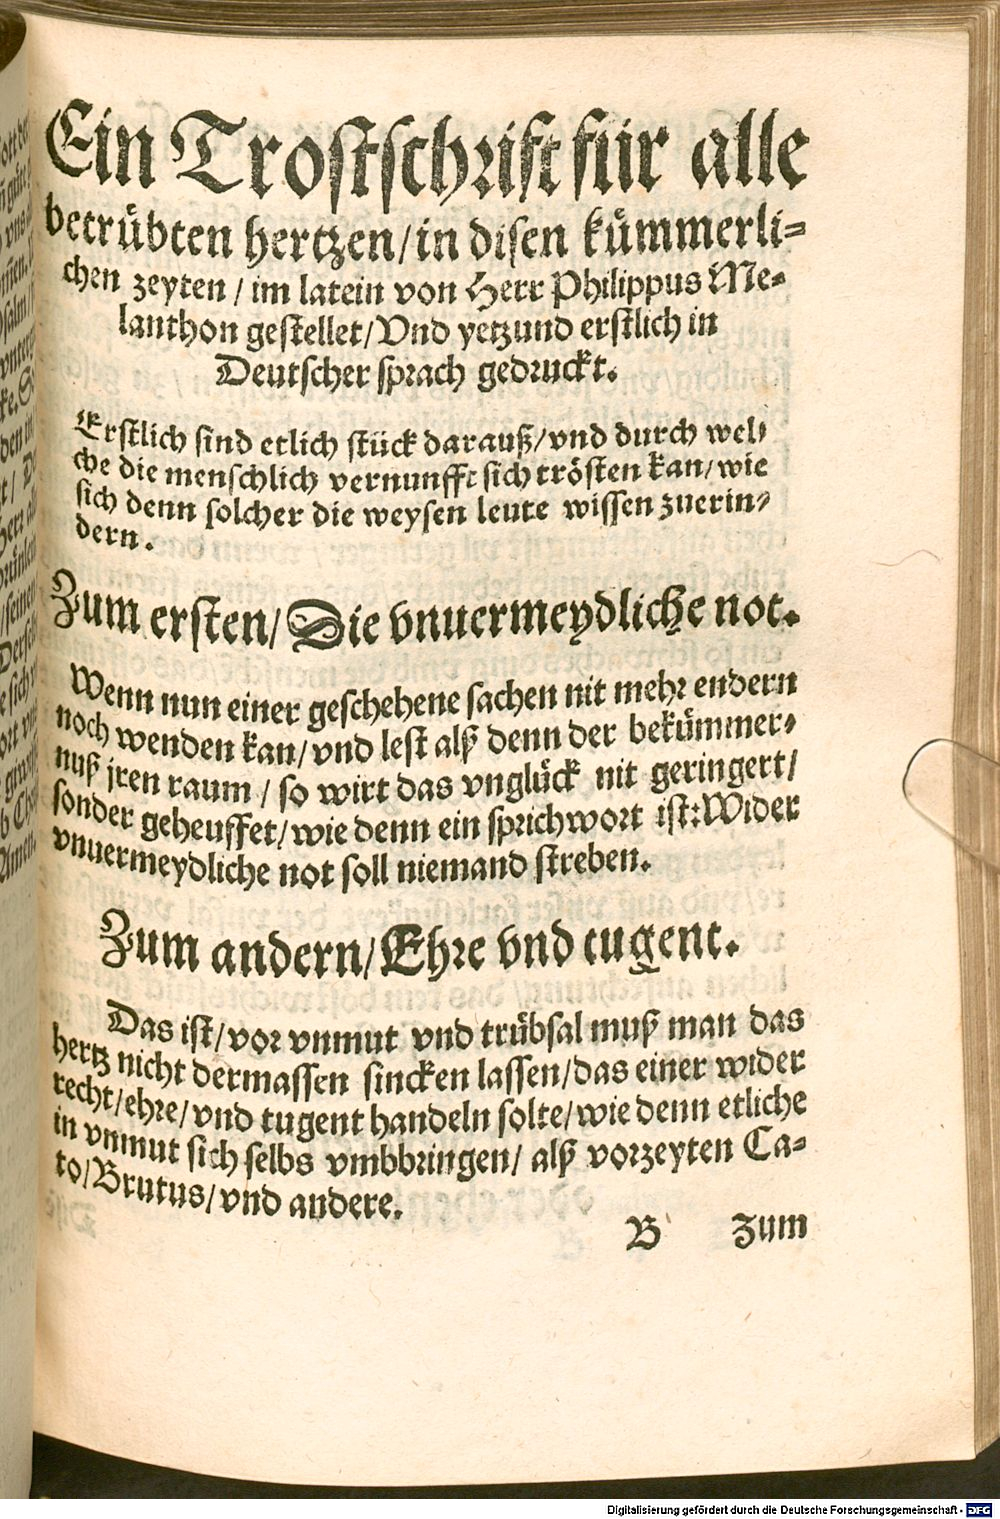 Ein Trostschrifft für alle
betrübten hertzen/in disen kümmerli-
chen zeyten / im latein von Herr Philippus Me-
lanthon gestellet/Vnd yetzund erstlich in
Deutscher sprach gedruckt.
Erstlich sind etlich stück darauß/vnd durch wel-
che die menschlich vernunfft sich trösten kan/wie
sich denn solcher die weysen leute wissen zuerin-
dern.
Zum ersten/Die vnuermeydliche not.
Wenn nun einer geschehene sachen nit mehr endern
noch wenden kan/vnd lest alß denn der bekümmer-
nuß jren raum / so wirt das vnglück nit geringert/
sonder geheuffet/wie denn ein sprichwort ist:Wider
vnuermeydliche not soll niemand streben.
Zum andern/Ehre vnd tugent.
Das ist/vor vnmut vnd trübsal muß man das
hertz nicht dermassen sincken lassen/das einer wider
recht/ehre/vnd tugent handeln solte/wie denn etliche
in vnmut sich selbs vmbbringen/ alß vorzeyten Ca-
to/Brutus/vnd andere.
B Zum
Digitalisierung gefördert durch die Deutsche Forschungsgemeinschaft - DFG